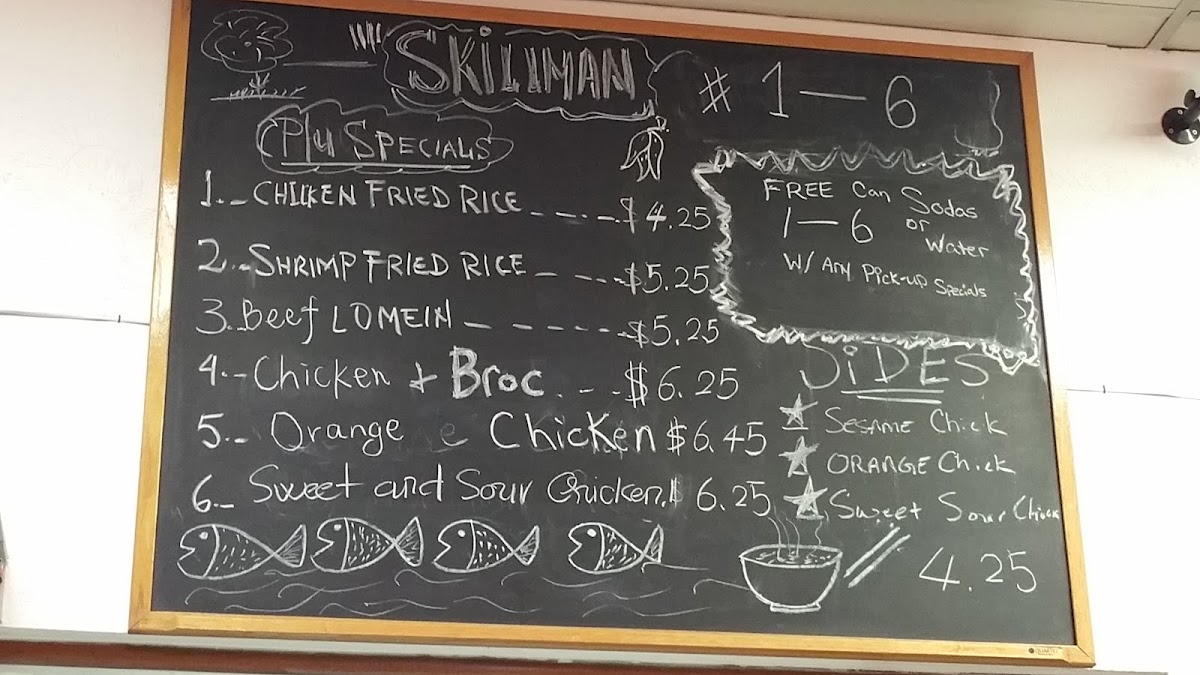 SKILIMAN
# 1 — 6
P/u SPECIALS
1._ CHICKEN FRIED RICE _ _ . _ . _ $ 4.25
2.._ SHRIMP FRIED RICE _ _ _ _ $5.25
3. Beef LOMEIN _ _ _ _ _ _ _ $5.25
4._ Chicken + Broc . _ _ $ 6.25
5._ Orange Chicken $ 6.45
6._ Sweet and Sour Chicken. $ 6.25
FREE Can Sodas
1 — 6 or
Water
W/ Any Pick-up Specials
SiDES
SESAME Chick
ORANGE Chick
Sweet Sour Chick
4.25